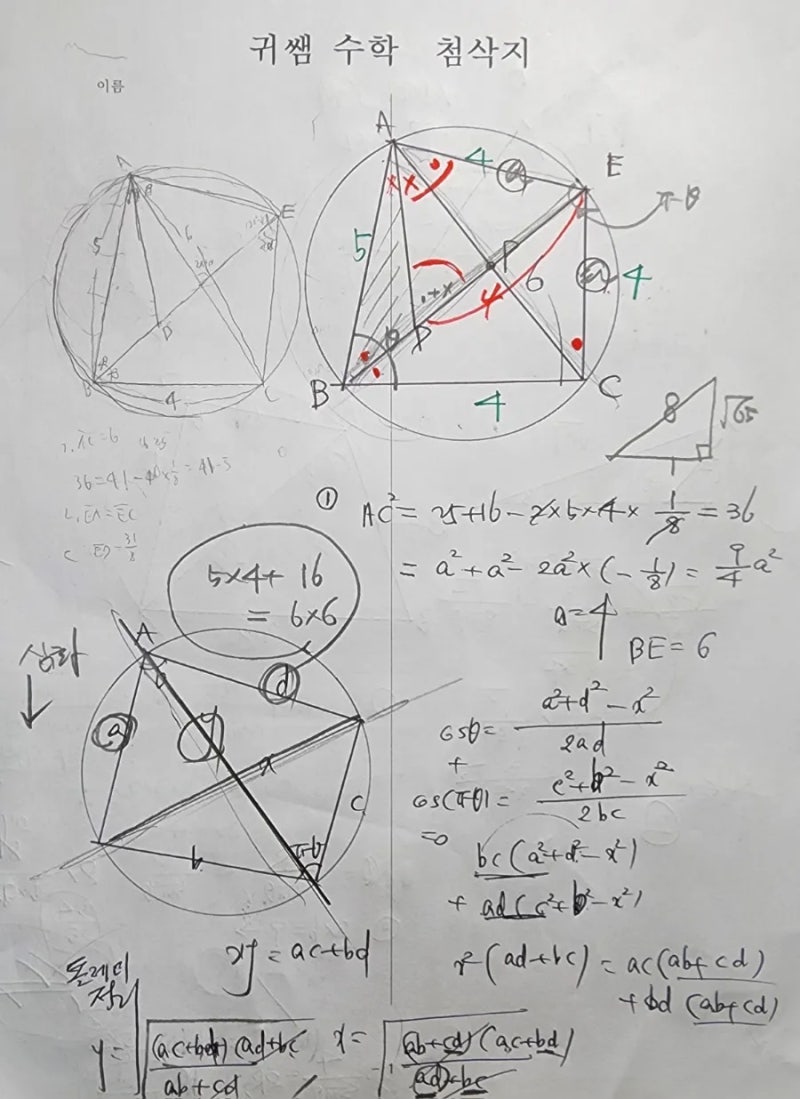 귀쌤 수학 첨삭지
이름
A
E
5
6
D
B
C
4
A
4
a
E
π-θ
5
P
6
a
4
θ
D
B
4
C
8
√65
1
36=41-40×1/8=41-5
ㄴ. EA=EC
① AC²=25+16-2×5×4×1/8=36
=a²+a²-2a²×(-1/8)=9/4a²
a=4
BE=6
5×4+16
=6×6
A
d
a
y
x
c
b
π-θ
cosθ=(a²+d²-x²)/2ad
+
cos(π-θ)=(c²+b²-x²)/2bc
=0
bc(a²+d²-x²)
+ad(c²+b²-x²)
xy=ac+bd
x²(ad+bc)=ac(ab+cd)
+bd(ab+cd)
톨레미
정리
y=√(ac+bd)(ad+bc)/ab+cd
x=√(ab+cd)(ac+bd)/ad+bc